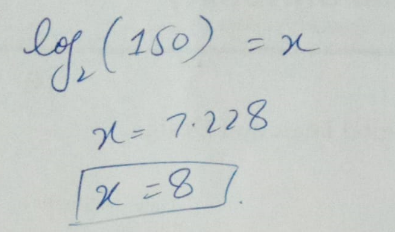 log₂(150) = x
x = 7.228
x = 8.